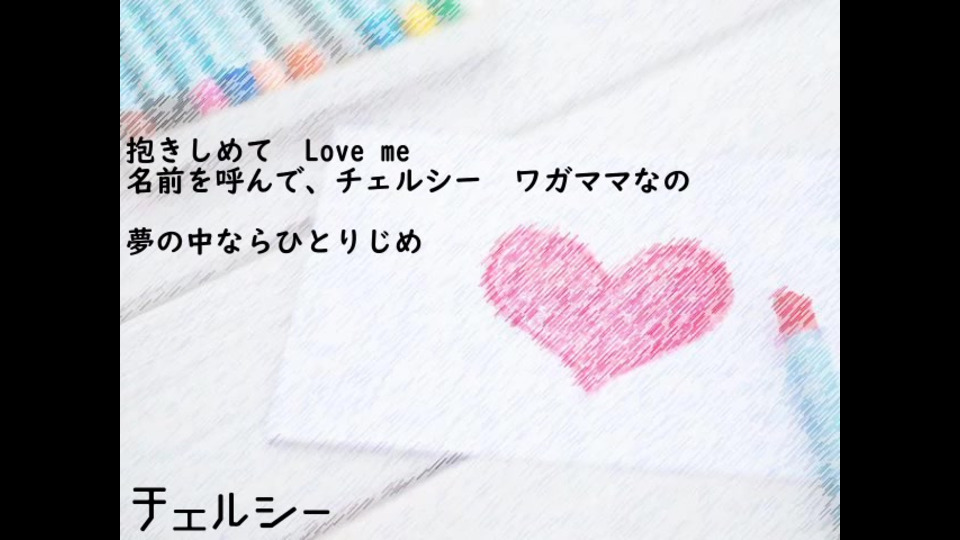 抱きしめて　Love me
名前を呼んで、チェルシー　ワガママなの
夢の中ならひとりじめ
チェルシー